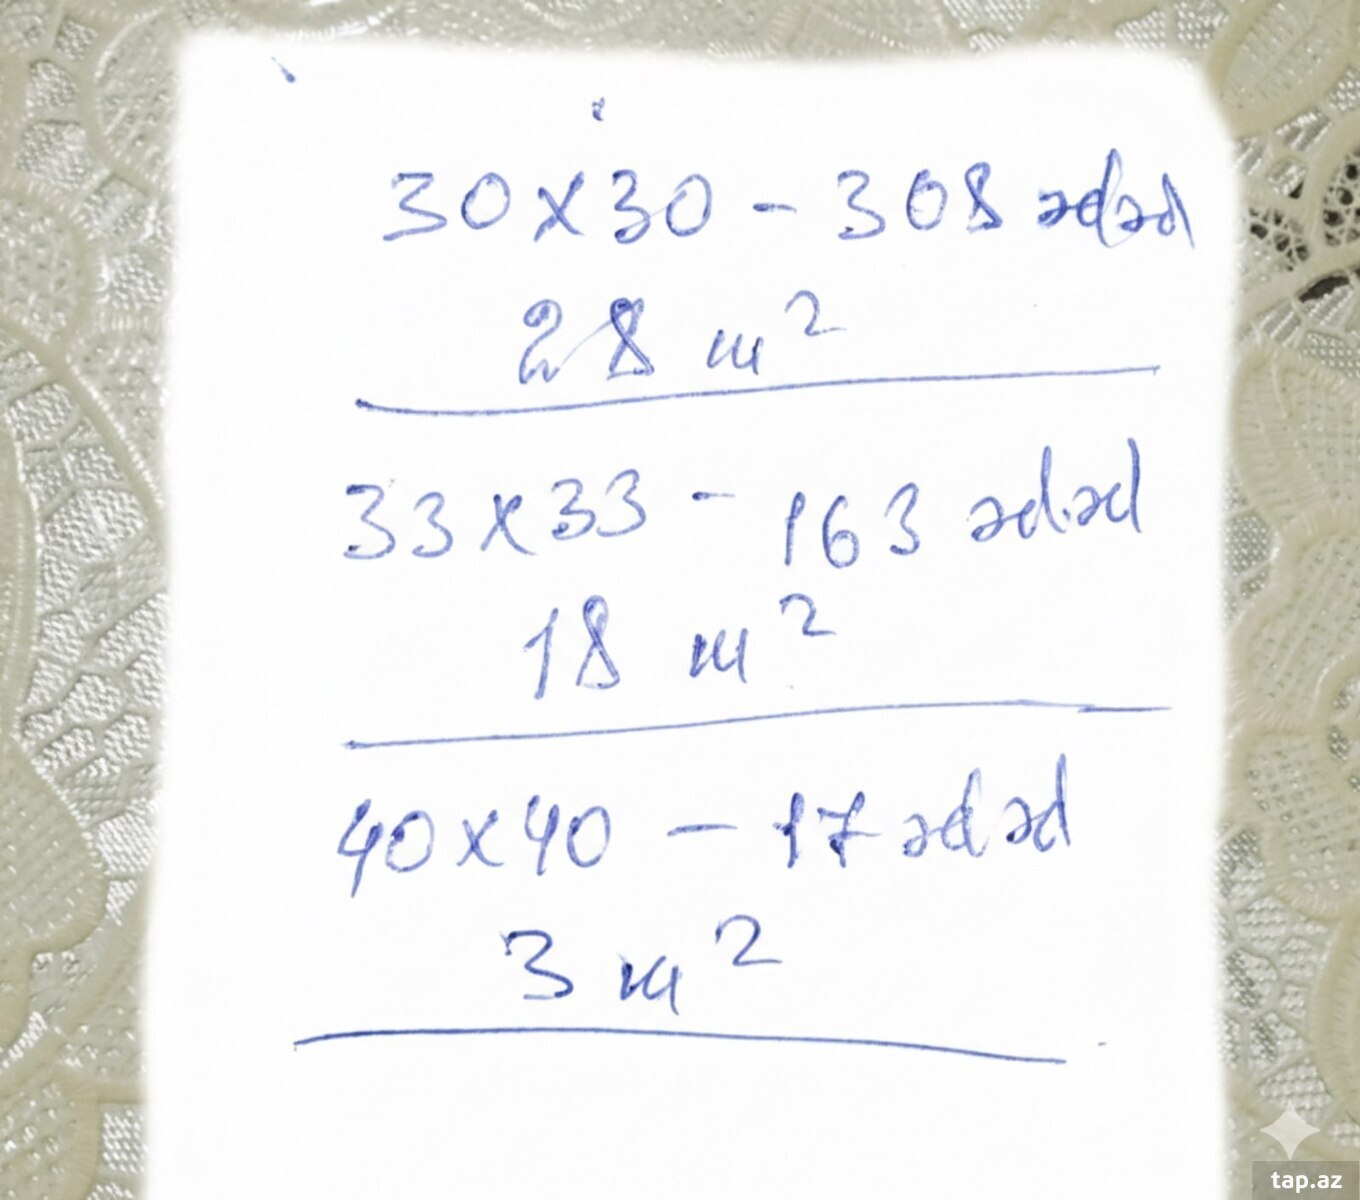 30x30 - 308 ədəd
28 m²
33x33 - 163 ədəd
18 m²
40x40 - 17 ədəd
3 m²
tap.az